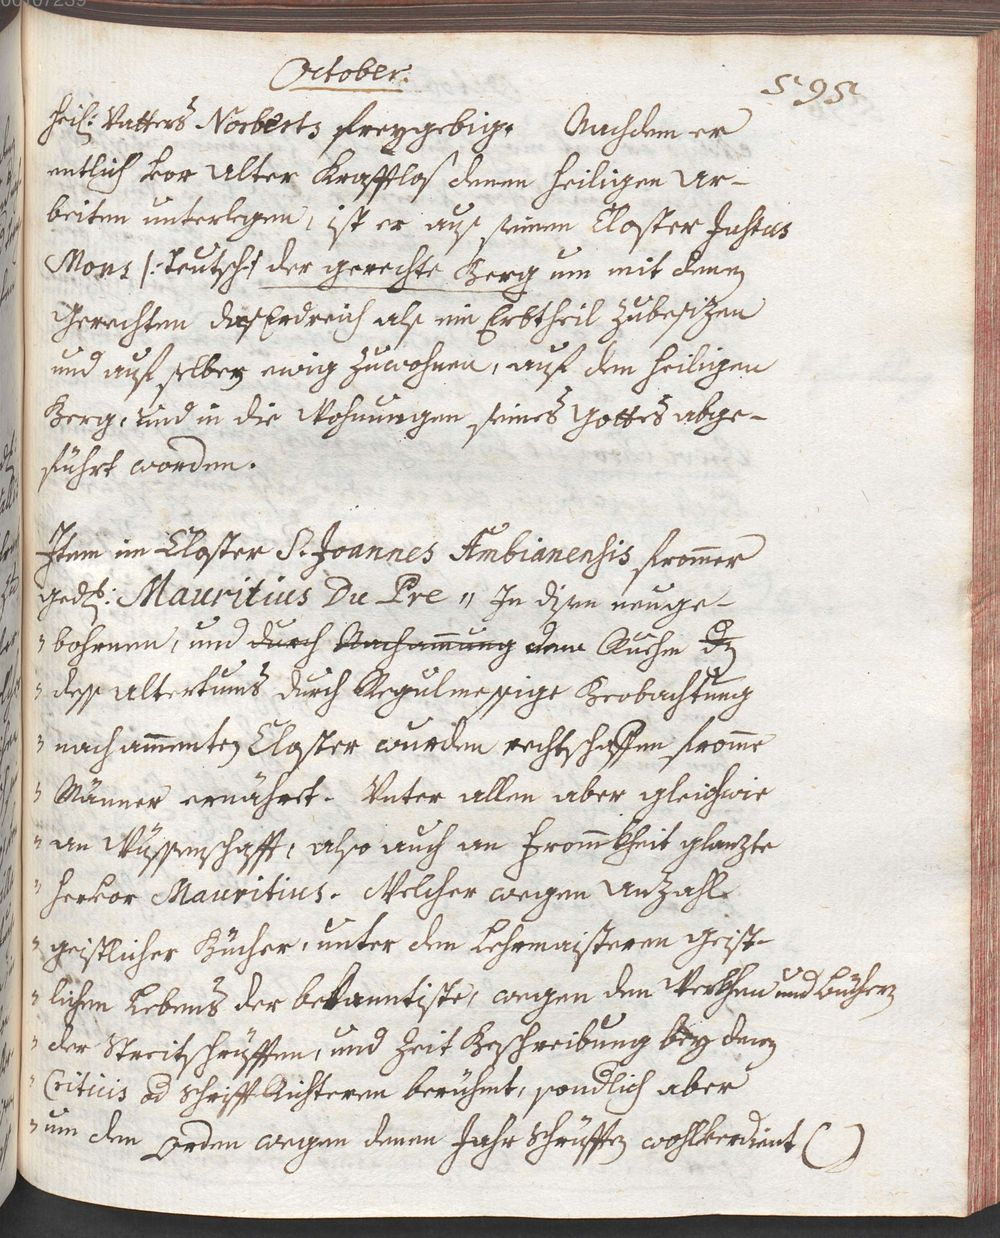 October.
595
heil: Vatters Norberts freygebig. Nachdem er
entlich vor Alter Krafftlos denen heiligen Ar-
beiten unterlegen, ist er aus seinem Closter Justus
Mons /: Teutsch :/ der gerechte Berg um mit denen
Gerechten das Erdreich als ein Erbtheil zubesizen
und auf selben ewig zuwohnen, auf den heiligen
Berg, und in die Wohnungen seines Gottes abge-
führt worden.
Item im Closter S. Joannes Ambianensis frommer
gedh: Mauritius Du Pre " In disem neuge-
" bohrnen, und durch Nachammung dem Ruhm
" dess Altertums durch Regulmessige Beobachtung
" nach ammenten Closter wurden rechtschaffen fromme
" Männer ernährt. Unter allen aber gleichwie
" an Wüssenschafft, also auch an Frommkheit glanzte
" hervor Mauritius. Welcher wegen Anzahl
" geistlicher Bücher, unter den Lehrmaisteren Geist-
" lichen Lebens der bekanntiste, wegen den Werkhen und Büchern
" der Streitschrüfften, und Zeit Beschreibung bey denen
" Criticis od Schrifft Richteren berühmt, sondlich aber
" um den Orden wegen denen Jahr Schrüfften wohlverdient ( )